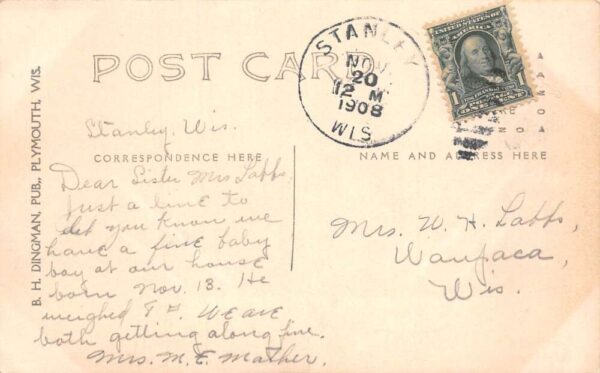 POST CARD
STANLEY
NOV
20
12 M
1908
WIS.
UNITED STATES OF AMERICA
1
B. H. DINGMAN, PUB., PLYMOUTH, WIS.
CORRESPONDENCE HERE
NAME AND ADDRESS HERE
Stanley, Wis.
Dear Sister Mrs Labbs,
Just a line to
let you know we
have a fine baby
boy at our house
born Nov. 13. He
weighed 9 #. We are
both getting along fine.
Mrs. M. E. Mather.
Mrs. W. H. Labbs,
Waupaca,
Wis.